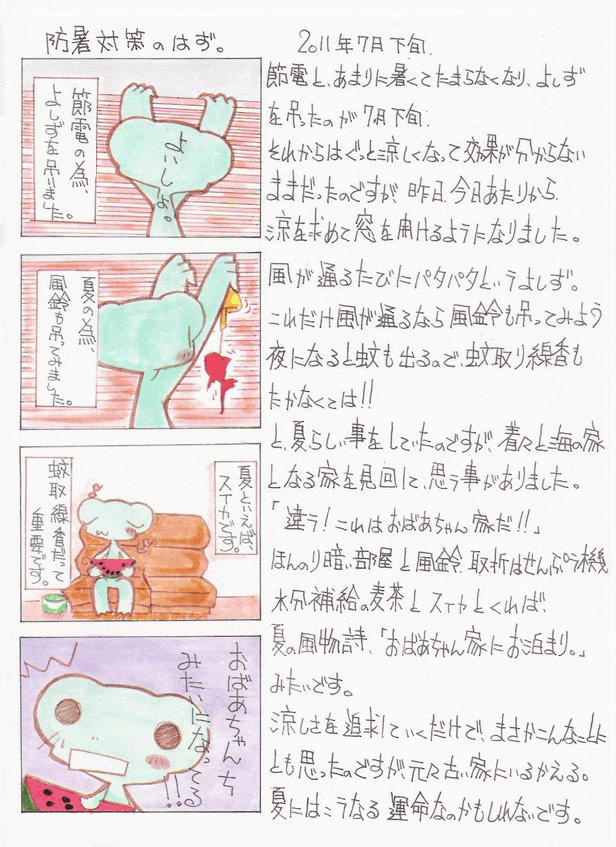 防暑対策のはず。
2011年7月下旬.
節電の為、
よしずを吊りました。
よいしょ。
夏の為、
風鈴も吊ってみました。
夏といえば、
スイカです。
蚊取線香だって
重要です。
おばあちゃんち
みたいになってる!!
節電と、あまりに暑くてたまらなくなり、よしず
を吊ったのが7月下旬.
それからはぐっと涼しくなって効果が分からない
ままだったのですが、昨日.今日あたりから
涼を求めて窓を開けるようになりました。
風が通るたびにパタパタというよしず。
これだけ風が通るなら風鈴も吊ってみよう
夜になると蚊も出るので、蚊取り線香も
たかなくては!!
と、夏らしい事をしていたのですが、着々と海の家
となる家を見回して、思う事がありました。
「違う!これはおばあちゃん家だ!!」
ほんのり暗い部屋と風鈴、取折はせんぷう機
水分補給の麦茶とスイカとくれば、
夏の風物詩、「おばあちゃん家にお泊まり。」
みたいです。
涼しさを追求していくだけで、まさかこんなことに
とも思ったのですが、元々古い家にいるかえる。
夏にはこうなる運命なのかもしれないです。